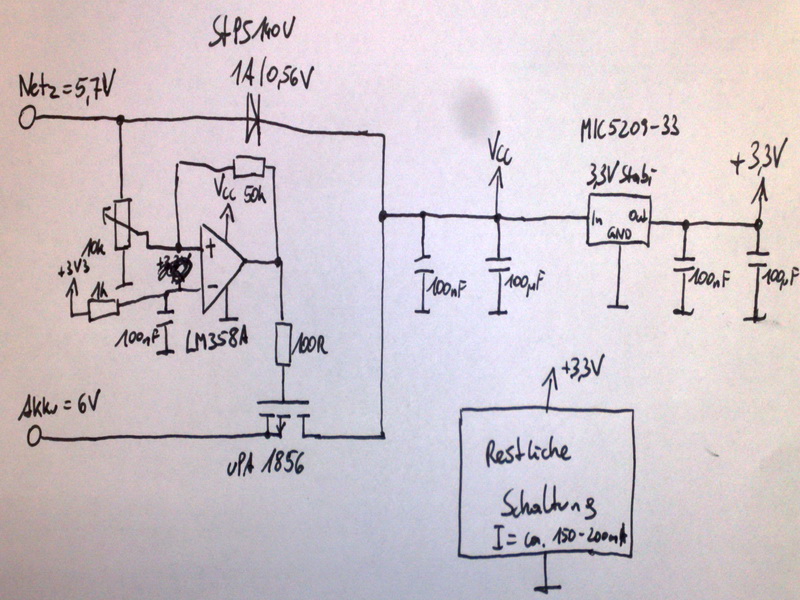 STPS140U
1A/0,56V
Netz=5,7V
MIC5209-33
Vcc
3,3V Stabi
+3,3V
Vcc
50k
In
Out
GND
10k
+
+3V3
1k
-
100nF
LM358A
100R
100nF
100µF
100nF
100µF
Akku=6V
µPA 1856
+3,3V
Restliche
Schaltung
I= ca. 150-200mA